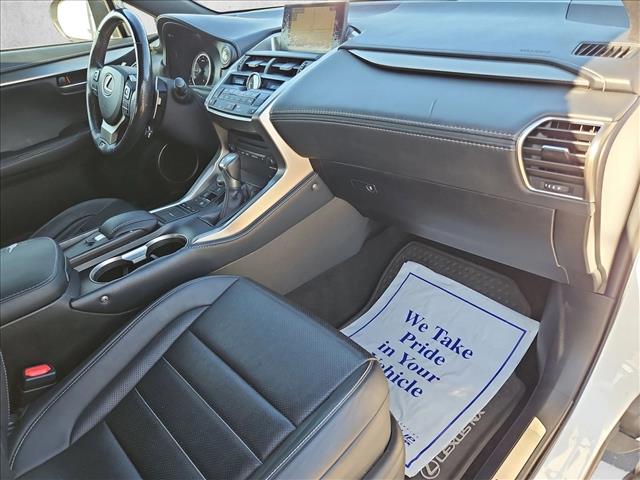 We Take
Pride
in Your
Vehicle
LEXUS NX